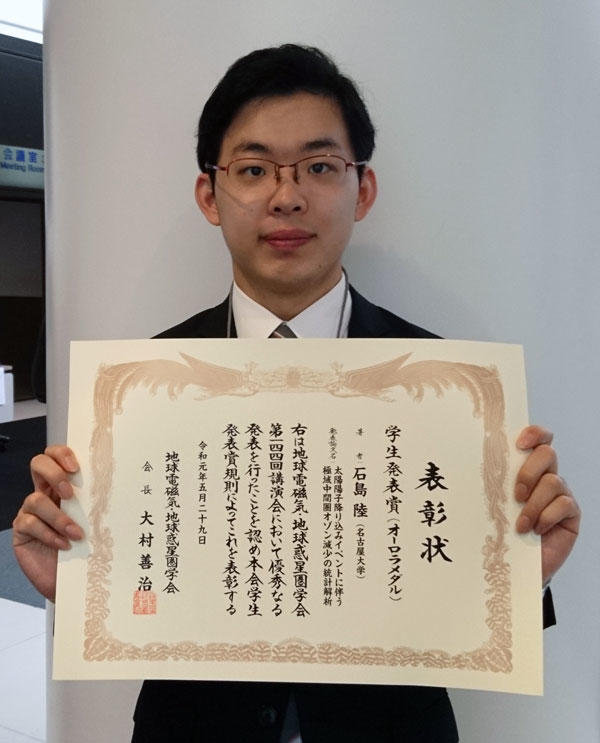 会議室
Meeting Room
表彰状
学生発表賞（オーロラメダル）
著者 石島 陸（名古屋大学）
発表論文名 太陽陽子降り込みイベントに伴う
極域中間圏オゾン減少の統計解析
右は地球電磁気・地球惑星圏学会
第一四四回講演会において優秀なる
発表を行ったことを認め本会学生
発表賞規則によってこれを表彰する
令和元年五月二十九日
地球電磁気・地球惑星圏学会
会長 大村善治